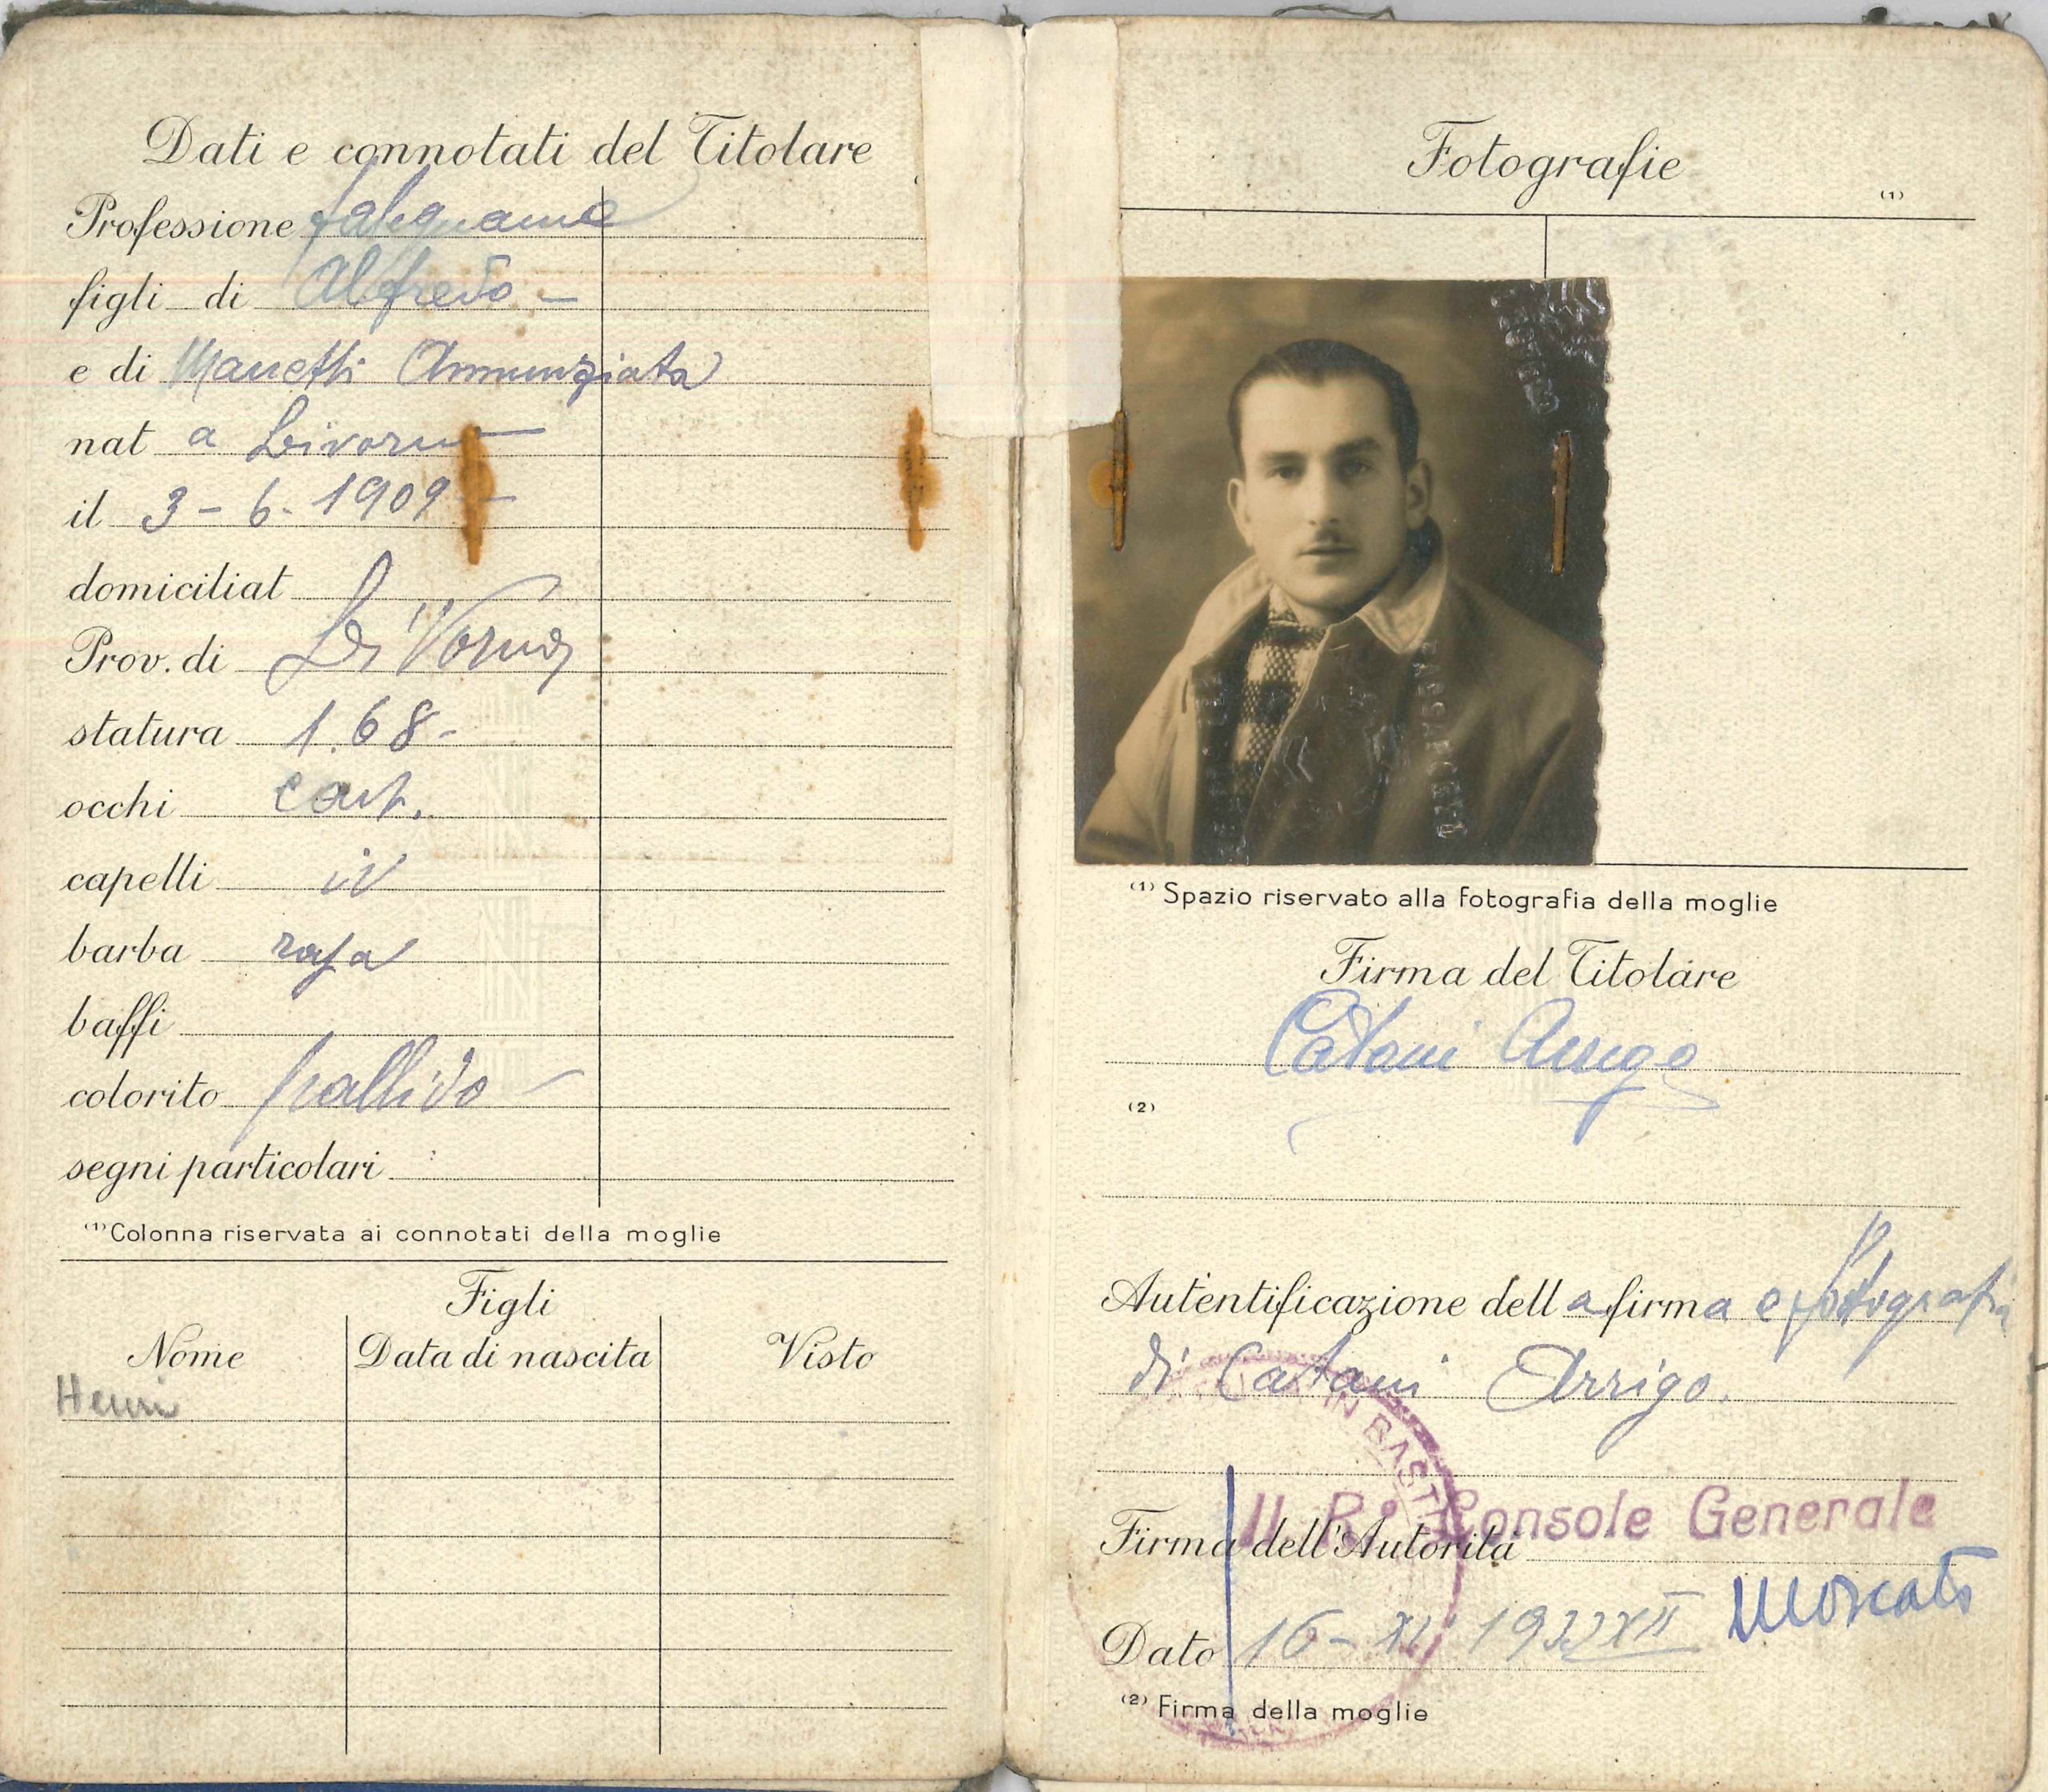 Dati e connotati del Titolare
Professione falegname
figli di Alfredo –
e di Manetti Annunziata
nat a Livorno
il 3 – 6 - 1909 –
domiciliat
Prov. di Livorno
statura 1.68 -
occhi cast.
capelli id
barba rasa
baffi
colorito pallido –
segni particolari
(1) Colonna riservata ai connotati della moglie
Figli
Nome Data di nascita Visto
Henri
Fotografie
(1)
(1) Spazio riservato alla fotografia della moglie
Firma del Titolare
Catani Arrigo
(2)
Autentificazione dell a firma e fotografia
di Catani Arrigo.
IN BASTIA
Il R° Console Generale
Firma dell'Autorità
Moscato
Dato 16 – XI 1933 XII
(2) Firma della moglie